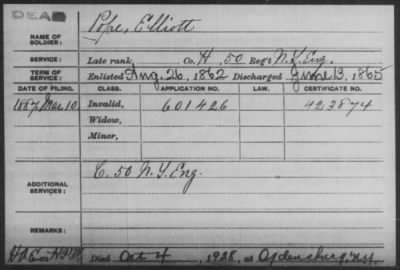 DEAD
NAME OF SOLDIER: Pope, Elliott
SERVICE: Late rank, Co. H, 50 Reg't N.Y. Eng.
TERM OF SERVICE: Enlisted Aug. 26, 1862 Discharged June 13, 1865
DATE OF FILING. CLASS. APPLICATION NO. LAW. CERTIFICATE NO.
1887 Mar. 10 Invalid, 601426 423874
Widow,
Minor,
ADDITIONAL SERVICES: C. 50 N.Y. Eng.
REMARKS:
Died Oct 4, 1928, at Ogdensburg, N.Y.